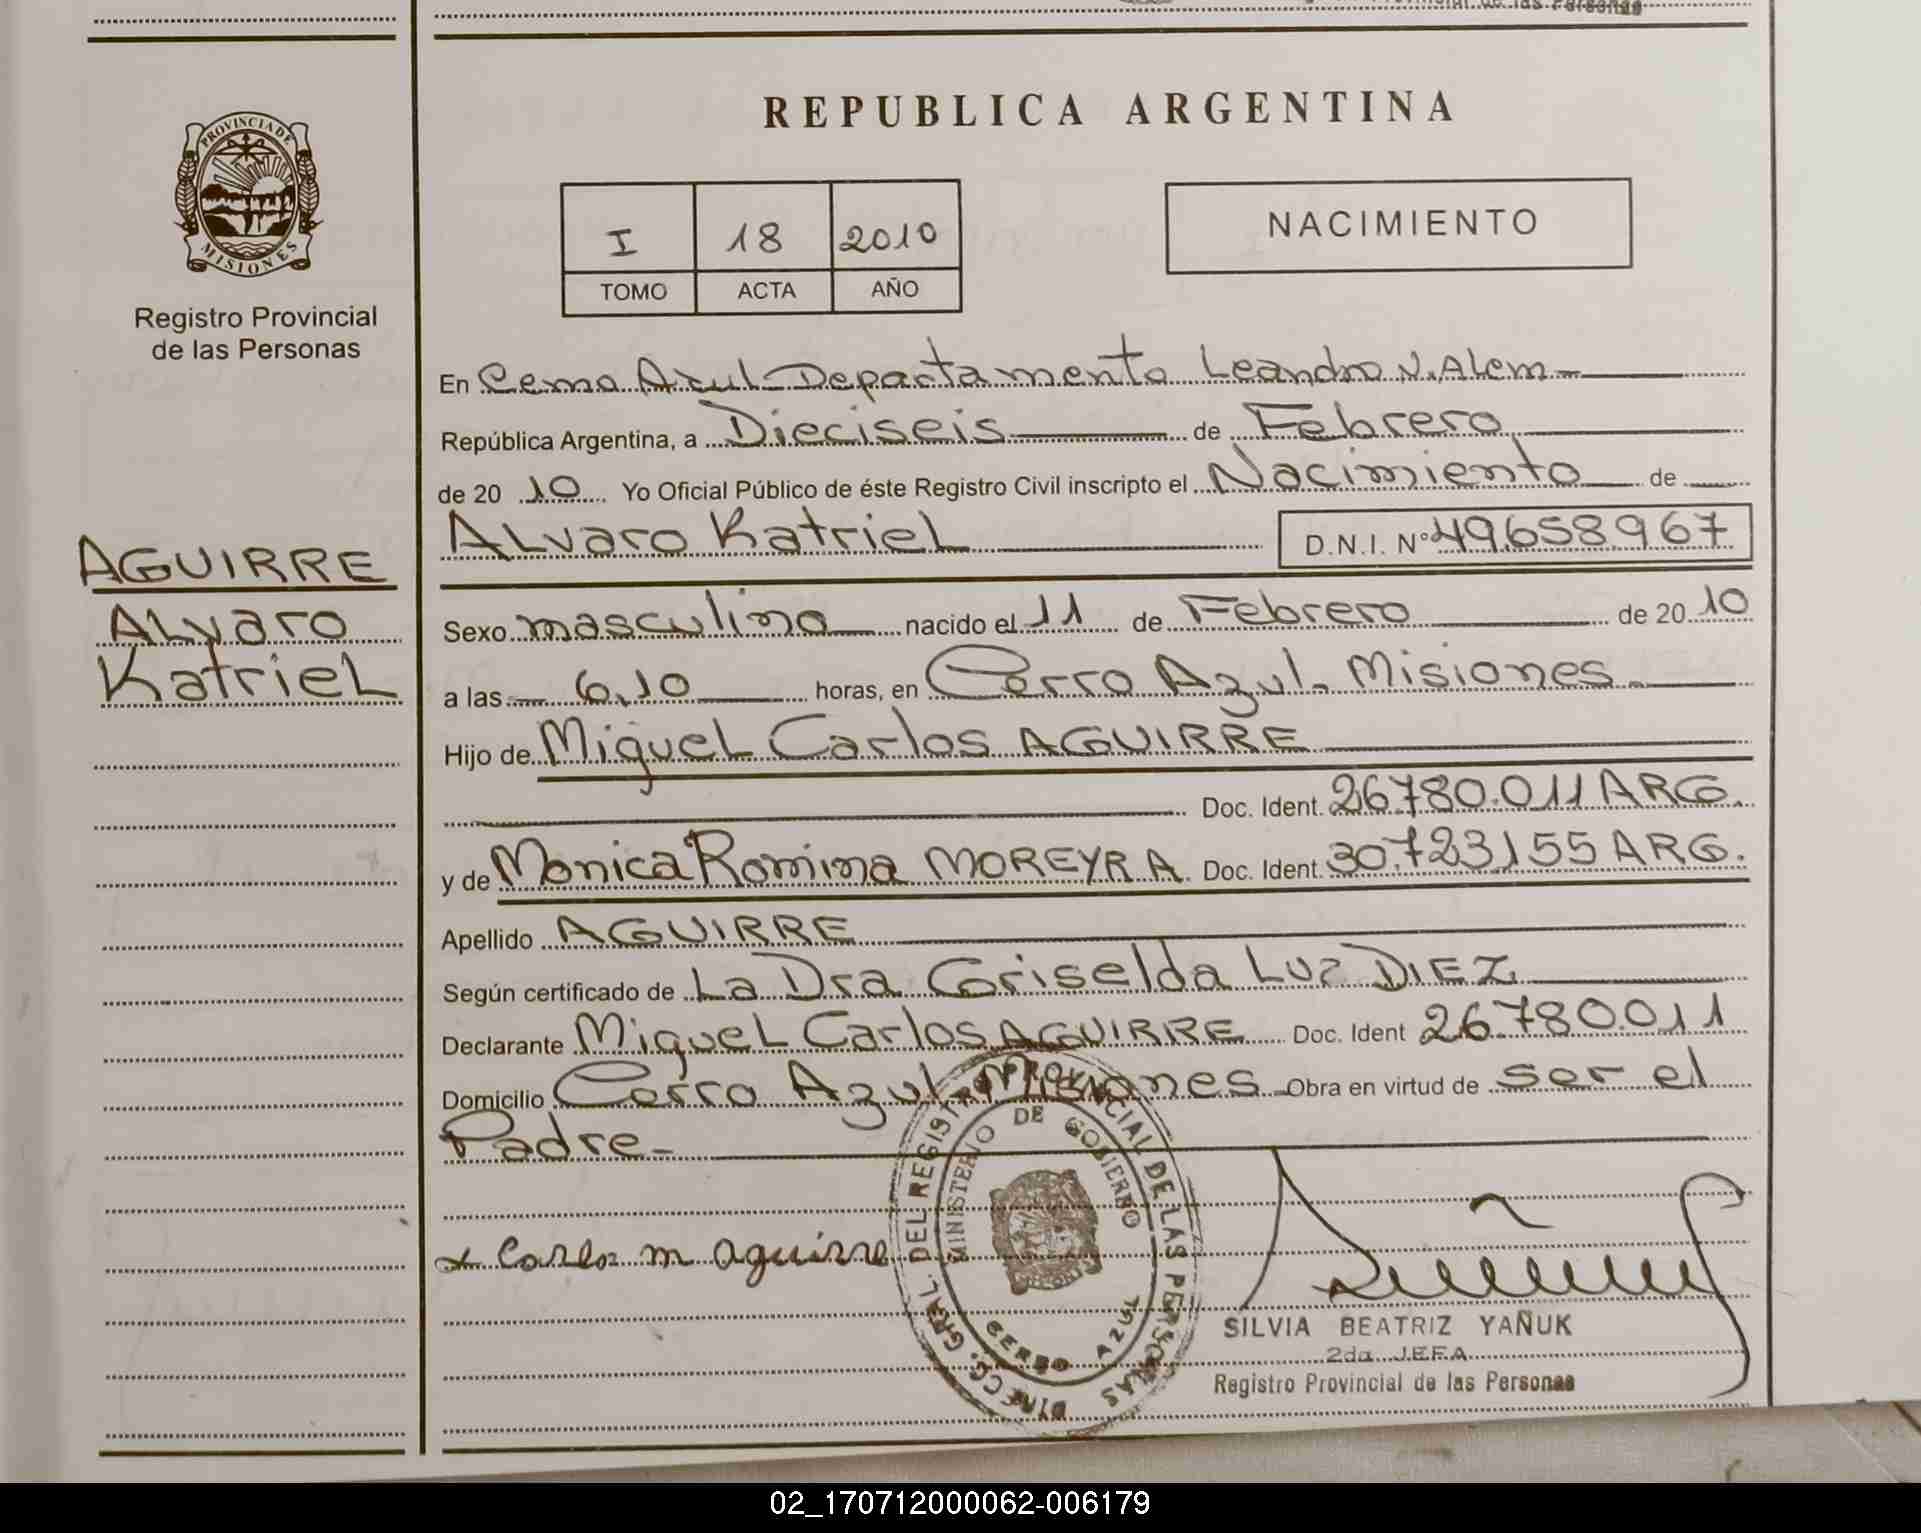 REPUBLICA ARGENTINA
PROVINCIA DE
MISIONES
Registro Provincial
de las Personas
I 18 2010
TOMO ACTA AÑO
NACIMIENTO
En Cerro Azul - Departamento Leandro N. Alem -
República Argentina, a Dieciseis de Febrero
de 20 10 Yo Oficial Público de éste Registro Civil inscripto el Nacimiento de
Alvaro Katriel D.N.I. Nº 49.658.967
AGUIRRE
Alvaro
Katriel
Sexo masculino nacido el 11 de Febrero de 20 10
a las 6,10 horas, en Cerro Azul - Misiones -
Hijo de Miguel Carlos AGUIRRE
Doc. Ident. 26.780.011 ARG.
y de Monica Romina MOREYRA Doc. Ident. 30.723.155 ARG.
Apellido AGUIRRE
Según certificado de La Dra Griselda Luz DIEZ
Declarante Miguel Carlos AGUIRRE Doc. Ident 26.780.011
Domicilio Cerro Azul - Misiones - Obra en virtud de ser el
Padre -
x Carlos m aguirre
DIRECC. GRAL. DEL REGISTRO PROVINCIAL DE LAS PERSONAS
MINISTERIO DE GOBIERNO
CERRO AZUL
SILVIA BEATRIZ YAÑUK
2da JEFA
Registro Provincial de las Personas
02_170712000062-006179